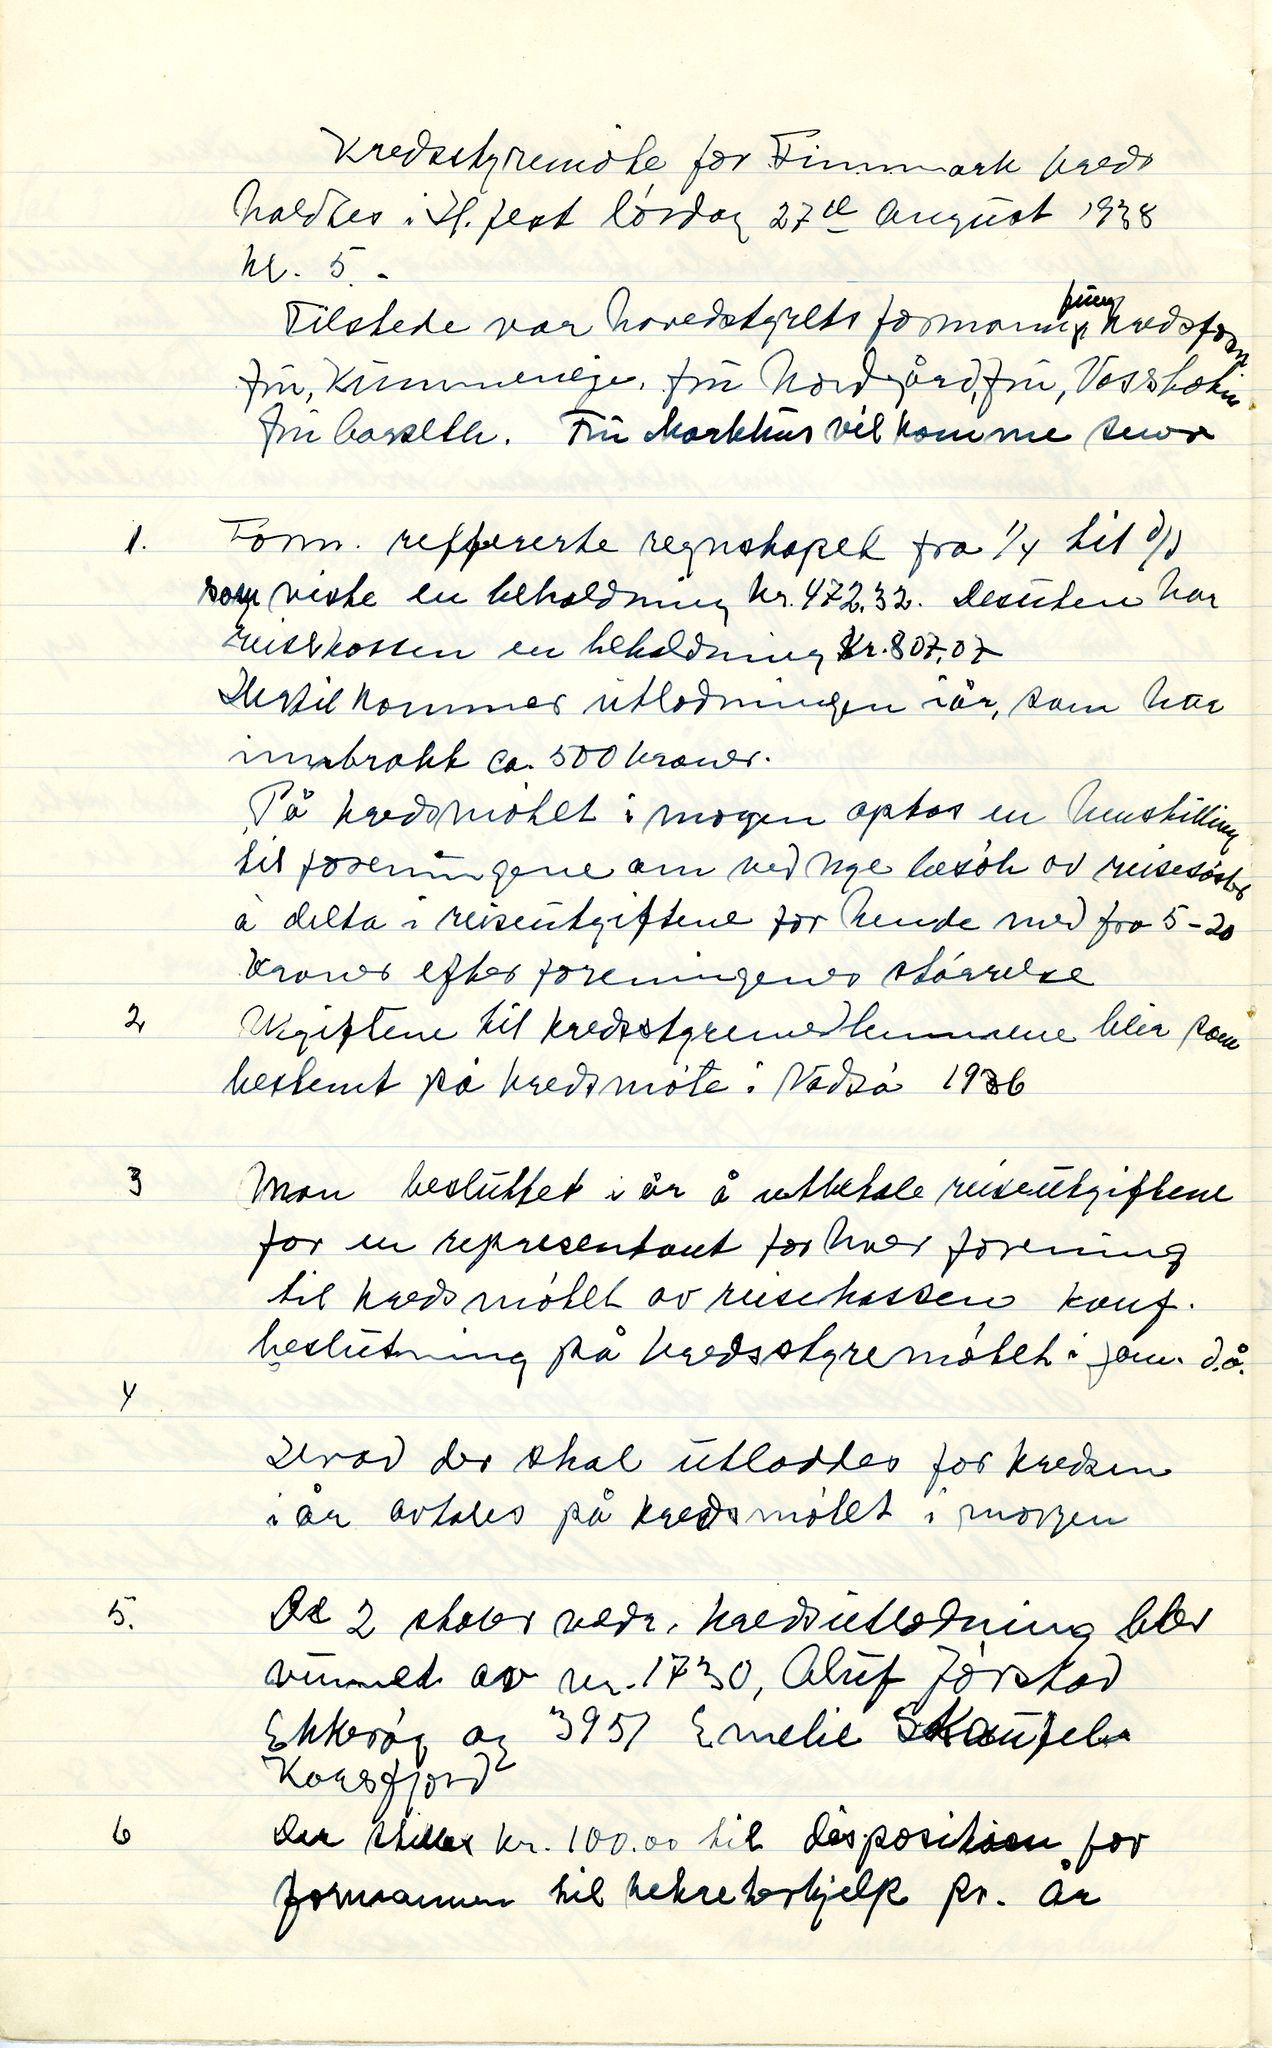 Kredsstyremöte for Finnmark kreds
holdtes i H.fest lördag 27de August 1938
kl. 5.-
Tilstede var hovedstyrets formann, kredsform
fru Kummeneje, fru Nordgård, fru Vossbakk
fru Carseth. Fru Markhus vil komme
1. Form. reffererte regnskapet fra 1/4 til d/d
som viste en beholdning kr. 472,32. Desuten har
reisekassen en beholdning kr. 807,07
Hertil kommer utlodningen i år, som har
innbrakt ca. 500 kroner.
På kredsmötet i morgen optas en henstilling
til foreningene om ved nye besök av reisesöster
å delta i reiseutgiftene for hende med fra 5-20
kroner efter foreningenes störrelse
2 Utgiftene til kredsstyremedlemmene blir som
bestemt på kredsmöte i Vadsö 1936
3 Man besluttet i år å utbetale reiseutgiftene
for en representant for hver forening
til kredsmötet av reisekassen konf.
beslutning på kredsstyremötet i jan. d.å.
4
Hvad der skal utloddes for kredsen
i år avtales på kredsmötet i morgen
5. De 2 stoler vedr. kredsutlodning blev
vunnet av nr. 1730, Aluf Jörstad
Ekkeröy og 3951 Emelie
Korsfjord
6 Der stilles kr. 100.00 til disposition for
formannen til sekreterhjelp pr. år